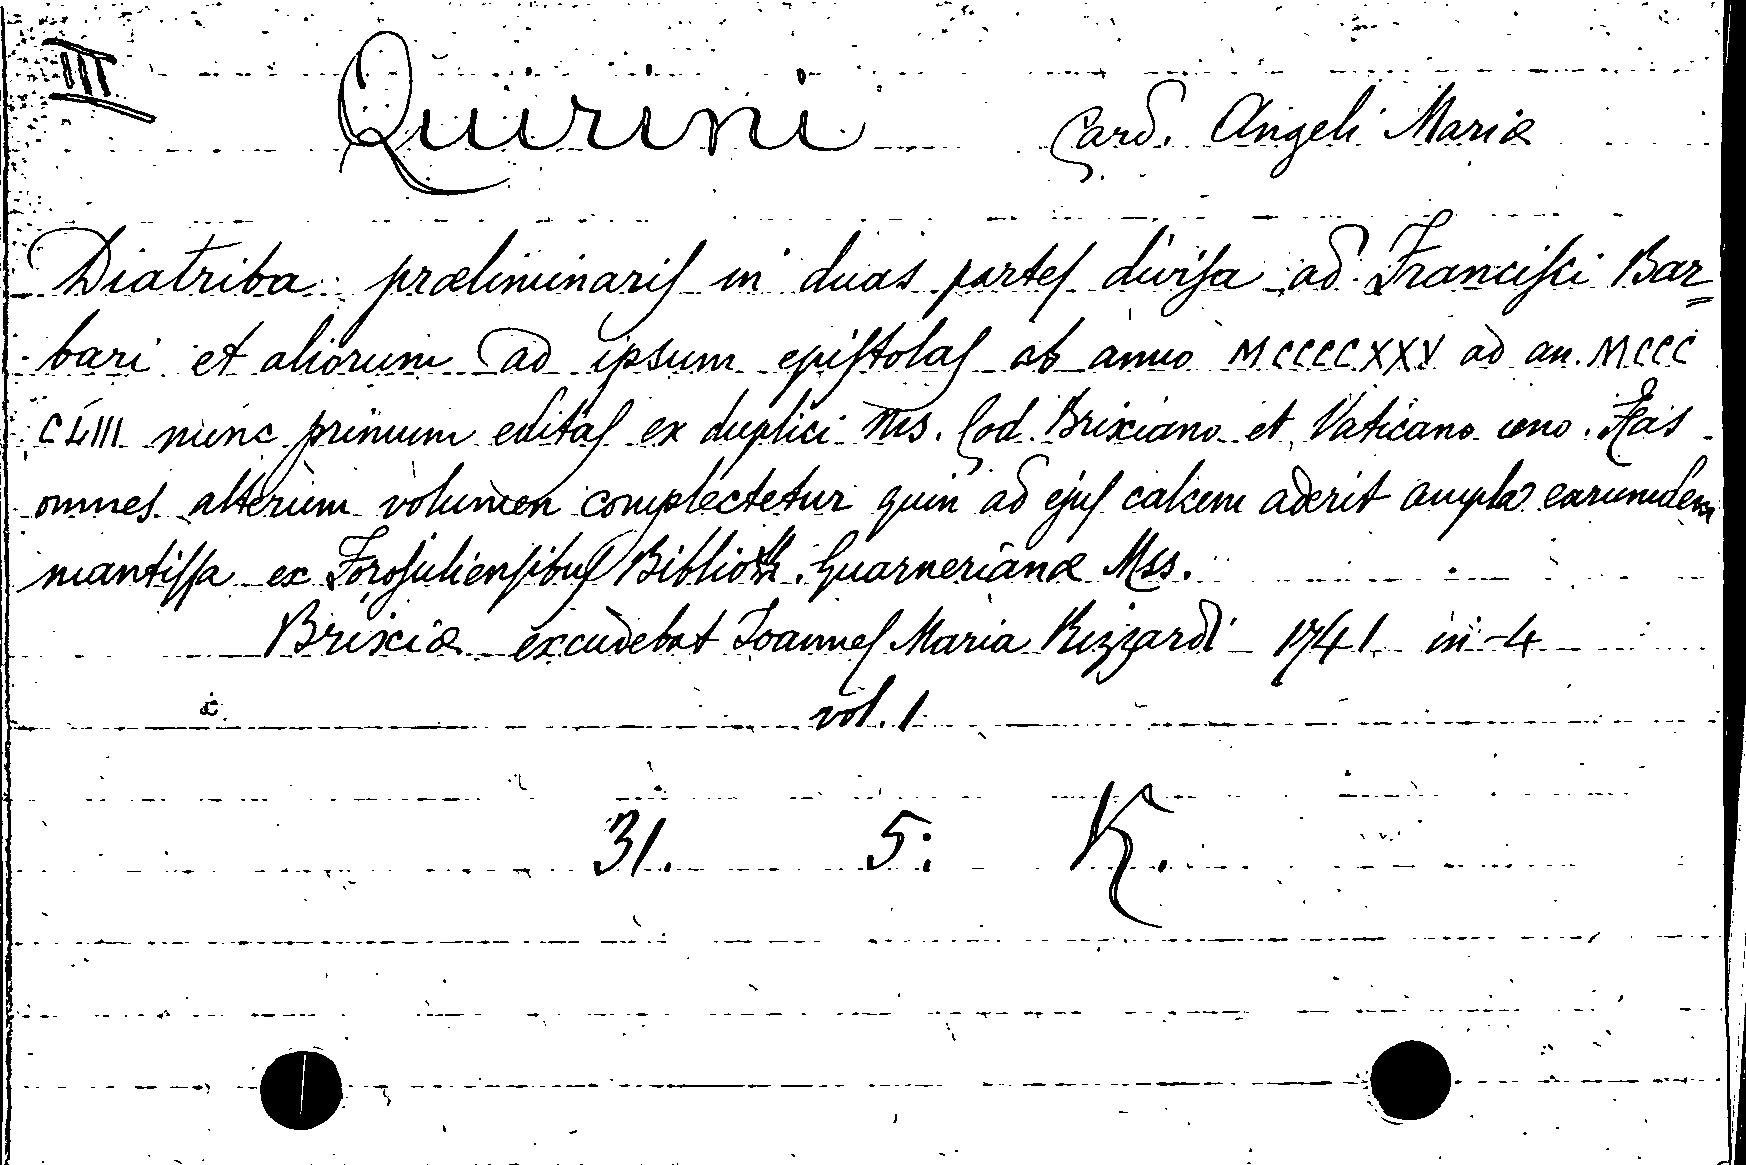 III
Quirini Card. Angeli Mariæ
Diatriba præliminaris in duas partes divisa ad Francisci Bar=
bari et aliorum ad ipsum epistolas ab anno MCCCCXXV ad an. MCCC
CLIII nunc primum editas ex duplici Ms. Cod. Brixiano et Vaticano uno. Has
omnes alterum volumen complectetur quin ad ejus calcem aderit ampla earumdem
mantissa ex Forojuliensibus Biblioth. Guarnerianæ Mss.
Brixiæ excudebat Joannes Maria Rizzardi 1741 in-4
vol. 1
31. 5: K.